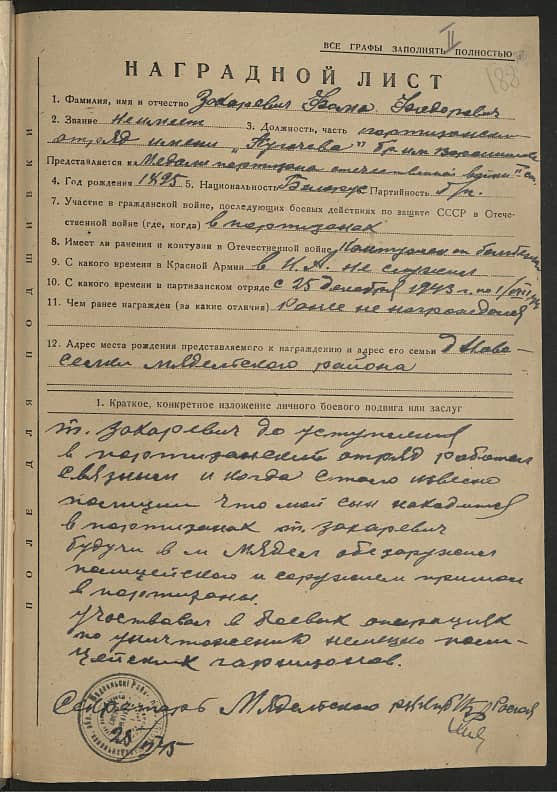 ВСЕ ГРАФЫ ЗАПОЛНЯТЬ ПОЛНОСТЬЮ
II
188
НАГРАДНОЙ ЛИСТ
1. Фамилия, имя и отчество Захаревич Ивана Федорович
2. Звание неимеет 3. Должность, часть партизански
отряд имени „Пугачева" бр. им Ворошилова
Представляется к „Медали партизана отечественной войны" ст.
4. Год рождения 1895 5. Национальность Белорус Партийность б/п.
7. Участие в гражданской войне, последующих боевых действиях по защите СССР в Отече-
ственной войне (где, когда) в партизанах
8. Имеет ли ранения и контузии в Отечественной войне Контужен от бомбежки
9. С какого времени в Красной Армии в К.А. не служил
10. С какого времени в партизанском отряде с 25 декабря 1943 г. по 1/VII 44
11. Чем ранее награжден (за какие отличия) Ранее не награждался
12. Адрес места рождения представляемого к награждению и адрес его семьи д Нова-
селки Мядельского района
1. Краткое, конкретное изложение личного боевого подвига или заслуг
т. Захаревич до уступления
в партизанский отряд работал
связным и когда стало извесно
полиции что мой сын находится
в партизанах т. Захаревич
будучи в м Мядел обезаружил
полицейского и соружием пришол
в партизаны.
участвовал в боевых операциях
по уничтожению немецко поли-
цейских гарнизонов.
Секретарь Мядельского
28 45
ПОЛЕ ДЛЯ ПОДШИВКИ